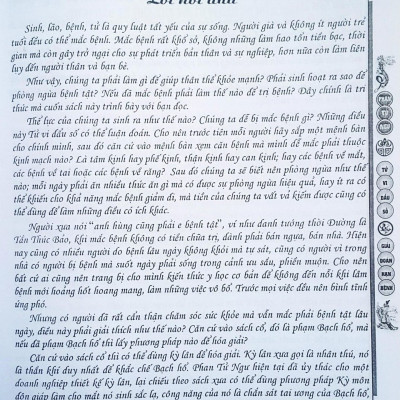 Lời nói đầu
Sinh, lão, bệnh, tử là quy luật tất yếu của sự sống. Người già và không ít người trẻ
tuổi đều có thể mắc bệnh. Mắc bệnh rất khổ sở, không những làm hao tốn tiền bạc, thời
gian mà còn gây trở ngại cho sự phát triển bản thân và sự nghiệp, hơn nữa còn làm liên
lụy đến người thân và bạn bè.
Như vậy, chúng ta phải làm gì để giúp thân thể khỏe mạnh? Phải sinh hoạt ra sao để
phòng ngừa bệnh tật? Nếu đã mắc bệnh phải làm thế nào để trị bệnh? Đây chính là tri
thức mà cuốn sách này trình bày với bạn đọc.
Thể lực của chúng ta sinh ra như thế nào? Chúng ta dễ bị mắc bệnh gì? Những điều
này Tử vi đẩu số có thể luận đoán. Cho nên trước tiên mỗi người hãy sắp một mệnh bàn
cho chính mình, sau đó căn cứ vào mệnh bàn xem căn bệnh mà mình dễ mắc phải thuộc
kinh mạch nào? Là tâm kinh hay phế kinh, thận kinh hay can kinh; hay các bệnh về mắt,
các bệnh về tai hoặc các bệnh về răng? Sau đó chúng ta sẽ biết nên phòng ngừa như thế
nào; mỗi ngày phải ăn nhiều thức ăn gì mà có được sự phòng ngừa hiệu quả, hay ít ra có
thể khiến cho khả năng mắc bệnh giảm đi, mà tiền của chúng ta vất vả kiếm được cũng có
thể dùng để làm những điều có ích khác.
Người xưa nói "anh hùng cũng phải e bệnh tật", ví như danh tướng thời Đường là
Tần Thúc Bảo, khi mắc bệnh không có tiền chữa trị, đành phải bán ngựa, bán nhà. Hiện
nay cũng có nhiều người do bệnh lâu ngày không khỏi mà tự sát, cũng có người vì trong
nhà có người bị bệnh mà suốt ngày phải sống trong cảnh ưu sầu, phiền muộn. Cho nên
bất cứ ai cũng nên trang bị cho mình kiến thức y học cơ bản để không đến nỗi khi lâm
bệnh mới hoảng hốt hoang mang, làm những việc vô bổ. Trước mọi việc đều nên bình tĩnh
ứng phó.
Nhưng có người đã rất cẩn thận chăm sóc sức khỏe mà vẫn mắc phải bệnh tật lâu
ngày, điều này phải giải thích như thế nào? Căn cứ vào sách cổ, đó là phạm Bạch hổ, mà
nếu đã phạm Bạch hổ thì lấy phương pháp nào để hóa giải?
Căn cứ vào sách cổ thì có thể dùng kỳ lân để hóa giải. Kỳ lân xưa gọi là nhân thú, nó
là thần khí duy nhất để khắc chế Bạch hổ. Phan Tử Ngư hiện tại đã ủy thác cho một
doanh nghiệp thiết kế kỳ lân, lại chiếu theo sách xưa có thể dùng phương pháp Kỳ môn
độn giáp làm cho mắt nó sinh sắc lạ, công năng của nó là chấn sát tai ương của Bạch hổ,
PHAN
TỬ
NGƯ
TỬ
VI
ĐẨU
SỐ
GIẢI
ĐOÁN
HẠN
BỆNH